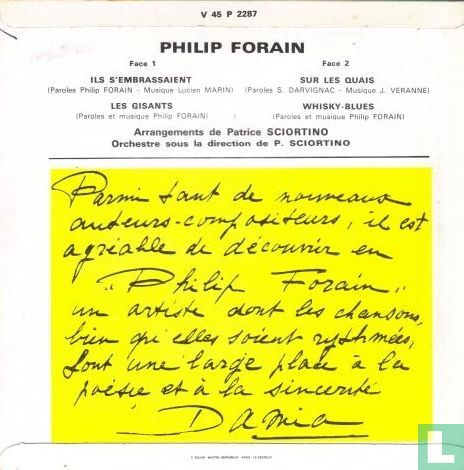 V 45 P 2287
PHILIP FORAIN
Face 1 Face 2
ILS S'EMBRASSAIENT SUR LES QUAIS
(Paroles Philip FORAIN - Musique Lucien MARIN) (Paroles S. DARVIGNAC - Musique J. VERANNE)
LES GISANTS WHISKY-BLUES
(Paroles et musique Philip FORAIN) (Paroles et musique Philip FORAIN)
Arrangements de Patrice SCIORTINO
Orchestre sous la direction de P. SCIORTINO
Parmi tant de nouveaux
auteurs-compositeurs, il est
agréable de découvrir en
"Philip Forain"
un artiste dont les chansons,
bien qu'elles soient rythmées,
font une large place à la
poésie et à la sincérité
Damia